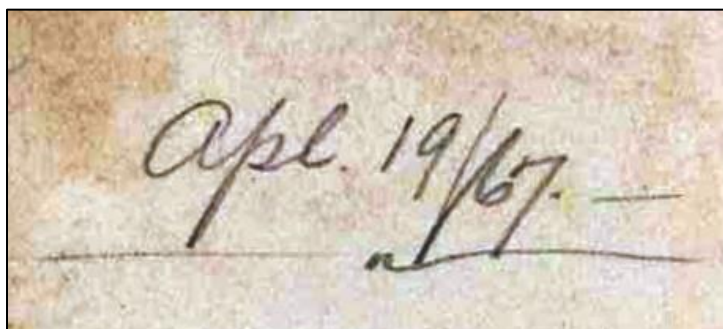 Apl. 19/67. —